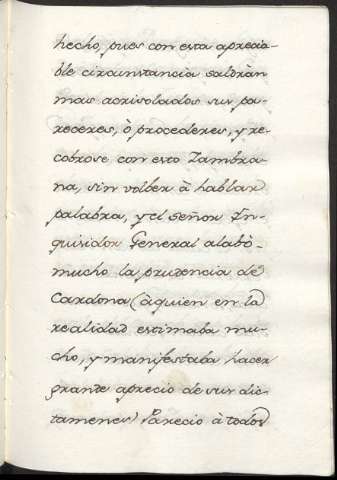 hecho, pues con esta aprecia-
ble circunstancia saldràn
mas acrisolados sus pa-
receres, ò procederes, y re-
cobrose con esto Zambra-
na, sin volber à hablar
palabra, y el señor In-
quisidor General alabò
mucho la prudencia de
Cardona (à quien en la
realidad estimaba mu-
cho, y manifestaba hacer
grande aprecio de sus dic-
tamenes) Parecio à todos